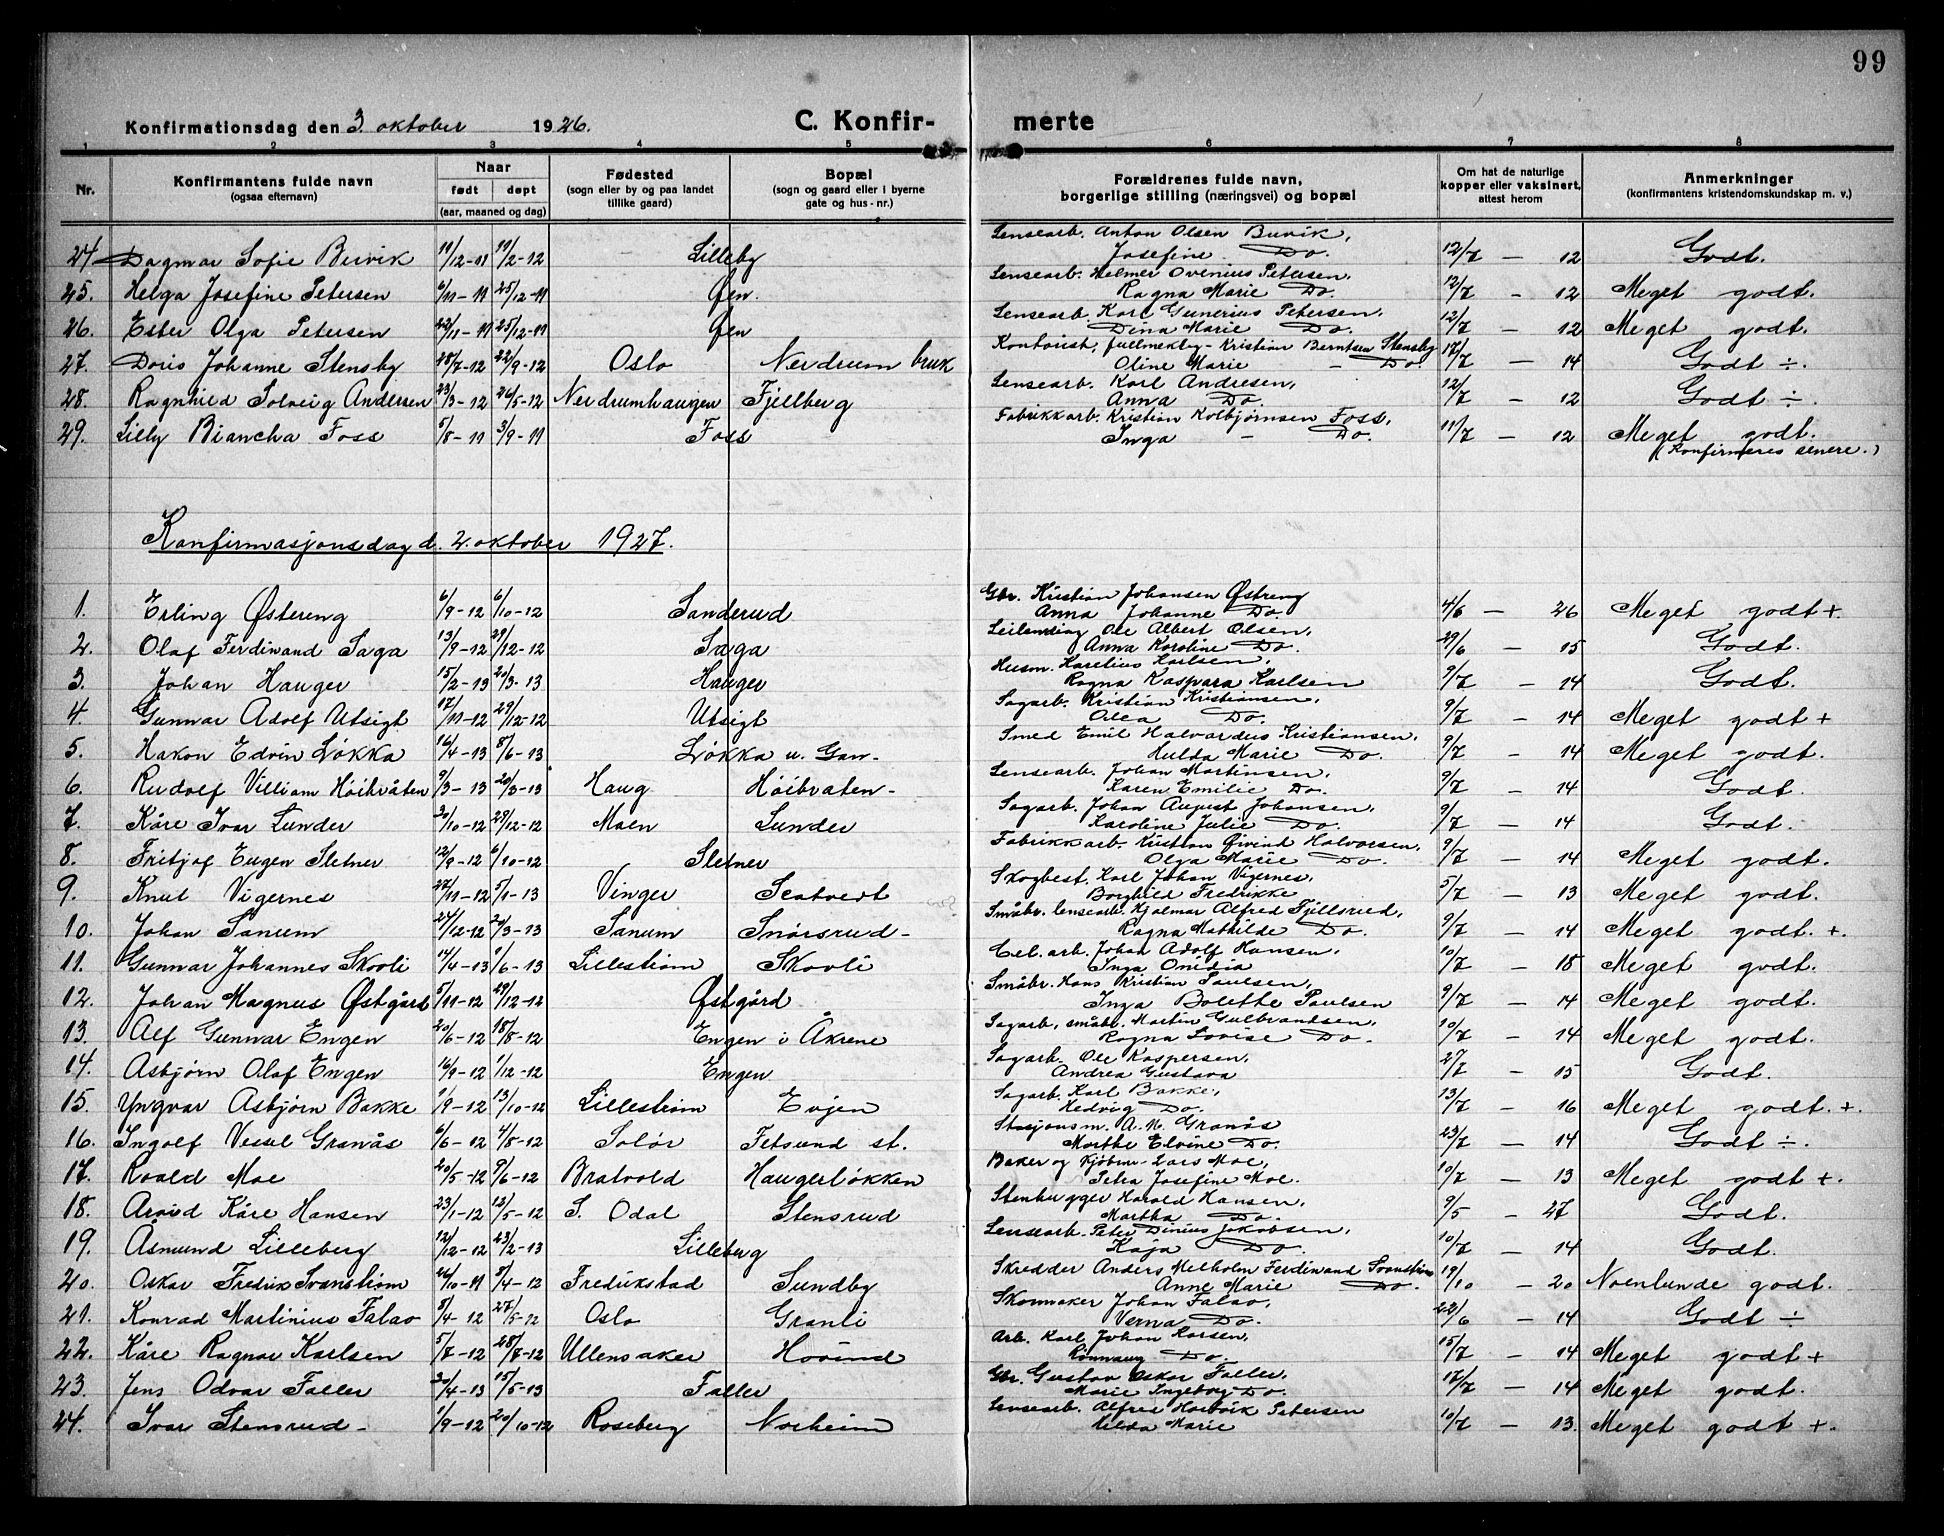 99
Konfirmationsdag den 3 oktober 1926. C. Konfirmerte
1 2 3 4 5 6 7 8
Nr. Konfirmantens fulde navn (ogsaa efternavn) Naar født døpt (aar, maaned og dag) Fødested (sogn eller by og paa landet tillike gaard) Bopæl (sogn og gaard eller i byerne gate og hus-nr.) Forældrenes fulde navn, borgerlige stilling (næringsvei) og bopæl Om hat de naturlige kopper eller vaksinert, attest herom Anmerkninger (konfirmantens kristendomskundskap m. v.)
24 Dagmar Sofie Buvik 11/12-11 11/2-12 Lilleby Lensearb. Anton Olsen Buvik, Josefine Do. 12/7 - 12 Godt.
25. Helga Josefine Petersen 6/11-11 25/12-11 Øen. Lensearb. Helmer Ovenius Petersen, Ragna Marie Do. 12/7 - 12 Meget godt.
26. Ester Olga Petersen 22/11-11 25/12-11 Øen Lensearb. Karl Gunerius Petersen, Dina Marie Do. 12/7 - 12 Meget godt.
27. Doris Johanne Stensby 28/7-12 22/9-12 Oslo Nerdrum bruk Kontorist, fullmektig - Kristian Berntsen Stensby Oline Marie - Do. 17/7 - 14 Godt ÷.
28. Ragnhild Solveig Andersen 23/3-12 26/5-12 Nerdrumhaugen Fjellberg Lensearb. Karl Andresen, Anna Do. 12/7 - 12 Godt ÷.
29. Lilly Biancha Foss 5/8-11 3/9-11 Foss Fabrikkarb. Kristian Kolbjørnsen Foss, Inga - Do. 11/7 - 12 Meget godt. (Konfirmeres senere.)
Konfirmasjonsdag d. 2. oktober 1927.
1. Erling Østereng 6/9-12 6/10-12 Sanderud Gbr. Kristian Johansen Østreng Anna Johanne Do. 4/6 - 26 Meget godt +.
2. Olaf Ferdinand Saga 13/9-12 29/12-12 Saga Leilending Ole Albert Olsen, Anna Karoline Do. 29/6 - 15 Godt.
3. Johan Hauger 15/2-13 20/3-13 Hauger Husm. Karelius Karlsen, Ragna Kaspara Karlsen 9/7 - 14 Godt.
4. Gunnar Adolf Utsigt 17/11-12 29/12-12 Utsigt Sagarb. Kristian Kristiansen, Olea Do. 9/7 - 14 Meget godt +
5. Hakon Edvin Løkka 16/4-13 8/6-13 Løkka u. Gan- Smed Emil Halvardus Kristiansen, Hulda Marie Do. 9/7 - 14 Meget godt.
6. Rudolf Villiam Höibråten 9/3-13 20/3-13 Haug Höibraten- Lensearb. Johan Martinsen, Karen Emilie Do. 9/7 - 14 Godt.
7. Kåre Ivar Lunder 30/10-12 29/12-12 Moen Lunder Sagarb. Johan August Johansen, Karoline Julie Do. 9/7 - 14 Godt.
8. Fritjof Eugen Sletner 12/9-12 6/10-12 Sletner Fabrikkarb. Kristian Øivind Halvorsen, Olga Marie Do. 9/7 - 14 Meget godt.
9. Knut Vigernes 27/11-12 5/1-13 Vinger Skogbest. Karl Johan Vigernes, Borghild Fredrikke 5/7 - 13 Meget godt.
10. Johan Sanum 24/12-12 24/3-13 Sanum Snörsrud- Småbr. lensearb. Hjalmar Alfred Fjellsrud, Ragna Mathilde Do. 9/7 - 14 Meget godt. +.
11. Gunnar Johannes Skovli 14/4-13 1/6-13 Lillestrøm Skovli Cel. arb. Johan Adolf Hansen, Inga Onidia 10/7 - 18 Meget godt.
12. Johan Magnus Østgård 5/11-12 29/12-12 Østgård Småbr. Hans Kristian Paulsen, Inga Bolette Paulsen 9/7 - 14 Meget godt.
13. Alf Gunnar Engen 20/6-12 18/8-12 Engen i Åkrene Sagarb, småbr. Martin Gulbrandsen, Ragna Lovise Do. 10/7 - 14 Meget godt.
14. Asbjørn Olaf Engen 16/9-12 1/12-12 Engen Sagarb. Ole Kaspersen, Andrea Gustava 27/7 - 15 Godt.
15. Yngvar Asbjörn Bakke 1/9-12 13/10-12 Lillestrøm Evjen Sagarb. Karl Bakke, Hedvig Do. 13/7 - 16 Meget godt. +.
16. Ingolf Vessel Granås 6/6-12 4/8-12 Solør Fetsund st. Stasjonsm. A. M. Granås Marthe Elvine Do. 23/7 - 14 Godt ÷.
17. Roald Moe 20/5-12 9/6-12 Bratvold Haugerløkken Baker og Kjöbm- Lars Moe, Petra Josefine Moe. 10/7 - 13 Meget godt +.
18. Arvid Kåre Hansen 23/1-12 12/5-12 S. Odal Stensrud Stenhugger Harald Hansen, Martha Do. 9/5 - 27 Godt.
19. Åsmund Lilleberg 12/12-12 23/2-13 Lilleberg Lensearb. Peter Dinius Jakobsen, Kaja Do. 10/7 - 14 Godt.
20. Oskar Fredrik Svanstrøm 26/10-11 8/4-12 Fredrikstad Sundby Skredder Anders Melholm Ferdinand Svanstrøm Anne Marie Do. 19/10 - 20 Noenlunde godt.
21. Konrad Martinius Falao 8/4-12 27/5-12 Oslo Granli Skomaker Johan Falao, Verna Do. 22/6 - 14 Godt ÷
22. Kåre Ragnar Karlsen 5/7-12 28/7-12 Ullensaker Hovind Arb. Karl Johan Karsen, Rønnaug Do. 15/7 - 14 Meget godt +
23. Jens Odvar Faller 30/4-13 15/5-13 Faller Gbr. Gustav Oskar Faller, Marie Ingeborg Do. 12/7 - 14 Meget godt.
24. Ivar Stensrud- 1/9-12 20/10-12 Roseberg Norheim Lensearb. Alfred Petersen Hilda Marie 10/7 - 13. Meget godt +.